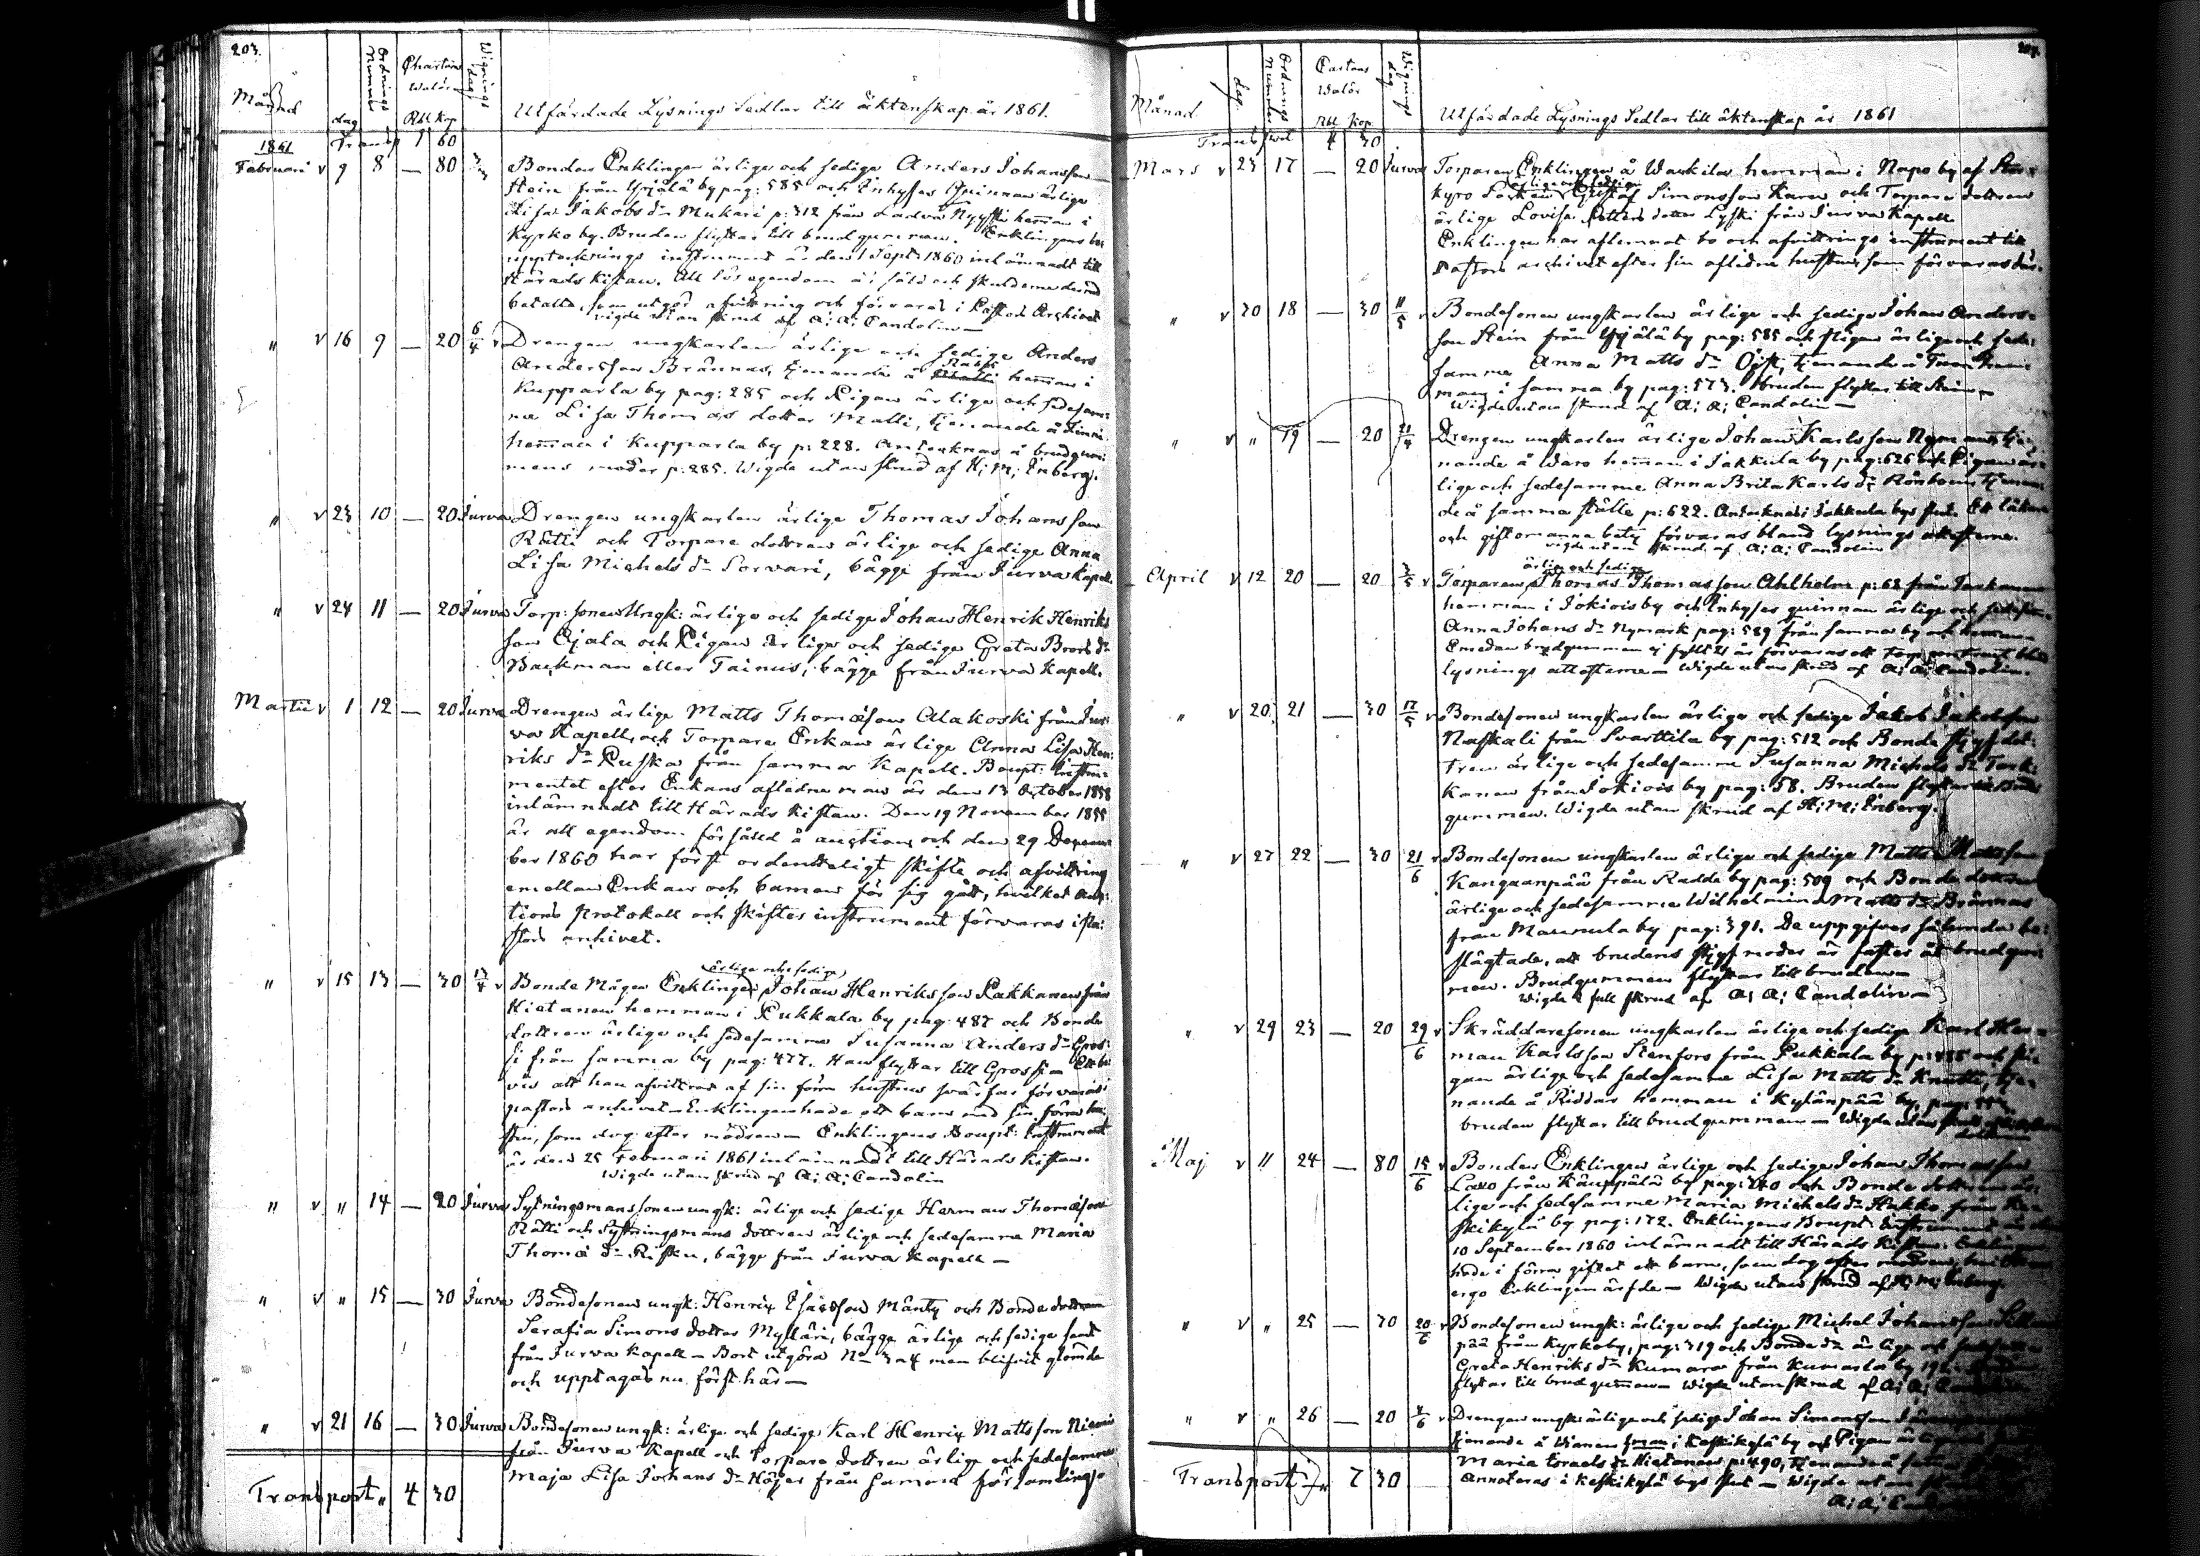 203.
Månad
dag
Ordnings Nummer
Chartans Walör
Rbl Kop
Wignings dag
Utfärdade Lysnings Sedlar till äktenskap år 1861.
1861 Transp 1 60
Februari v 9 8 — 80 3/3 Bonden Enklingen ärlige och sedige Anders Johansson
Stein från Yrjälä by pag: 585 och Inhyses Quinnan ärliga
Lisa Jakobs dr Mukari p: 312 från Ladva Nyysti heman i
Kyrko by. Bruden flyttar till brudgumman. Enklingens bo
uppteknings instrument är den 1 Sept: 1860 inlämnadt till
Härads kistan. All lös egendom är såld och skulderne dermed
betalta, som utgör afvittring och förvaras i Pastors Archivet
vigde utan skrud af A; A; Candolin —
" v 16 9 — 20 6/4 v Drengen ungkarlen ärlige och sedige Anders
Andersson Brännas, tjenande å heman i
Kupparla by pag: 285 och Pigan ärliga och sedesam-
ma Lisa Thomas dotter Matti, tjenande å
heman i Kupparla by p: 228. Antecknas å brudgum-
mens moder p: 285. Wigde utan skrud af H; M; Enberg.
" v 23 10 — 20 Jurva Drengen ungkarlen ärlige Thomas Johansson
Rätti och Torpare dottren ärliga och sediga Anna
Lisa Michels dr Sorvari, bägge från Jurva Kapell.
" v 24 11 — 20 Jurva Torp: sonen Ungk: ärlige och sedige Johan Henrik Henriks
son Ojala och Pigan ärliga och sediga Greta Brors dr
Backman eller Tainus, bägge från Jurva Kapell.
Martii v 1 12 — 20 Jurva Drengen ärlige Matts Thomæson Alakoski från Jur-
va Kapell, och Torpare Enkan ärliga Anna Lisa Hen-
riks dr Ruska från samma Kapell. Boupt: Instru-
mentet efter Enkans aflidne man är den 13 October 1858
inlämnadt till Härads Kistan. Den 19 November 1855
är all egendom försåld å auction, och den 29 Decem-
ber 1860 har först ordenteligt skifte och afvittring
emellan Enkan och barnen för sig gått, hvilket auk-
tions protokoll och skiftes instrument förvaras i Pa-
stors arhivet.
" v 15 13 — 30 13/4 v Bonde Mågen Enklingen ärlige och sedige Johan Henriksson Pakkanen från
Hietanen hemman i Pukkala by pag: 487 och Bonde
dottren ärliga och sedesamma Susanna Anders dr Gros-
si från samma by pag: 477. Han flyttar till Grossi — Ett be-
vis att han afvittrat af sin förra hustrus svärfar förvaras i
pastors arhivet — Enklingen hade ett barn med sin förra hu-
stru, som dog efter modren — Enklingens Boupt: Instrument
är den 25 Februari 1861 inlämnadt till Härads Kistan.
Wigde utan skrud af A; A; Candolin
" v " 14 — 20 Jurva Sytningsmanssonen ungk: ärlige och sedige Herman Thomæson
Rätti och Sytningsmans dottren ärliga och sedesamma Maria
Thomæ dr Risku, bägge från Jurva Kapell —
" v " 15 — 30 Jurva Bondesonen ungk: Henrix Esaisson Mänty och Bonde dottren
Serafia Simons dotter Myllari, bägge ärliga och sediga samt
från Jurva Kapell — Bort utgöra No 3 a 4 men blifvit glömde
och upptagas nu först här —
" v 21 16 — 30 Jurva Bondesonen ungk: ärlige och sedige Karl Henrix Mattsson
från Jurva Kapell och Torpare dottren ärliga och sedesamma
Maja Lisa Johans dr Höijer från samma församling.
Transport " 4 30
204.
Månad
dag.
Ordnings Nummer
Cartans Walör
Rbl Kop
Wignings dag
Utfärdade Lysnings Sedlar till äktenskap år 1861
Transport 4 30
Mars v 23 17 — 20 Jurva Torparen Enklingen å Waukila hemman i Napo by af Stor-
kyro Sockn ärlige och sedige Gustaf Simonsson Karu och Torpare dottren
ärliga Lovisa dotter Lyski från Jurva Kapell
Enklingen har aflemnat bo och afvittrings instrument till
Pastors archivet efter sin aflidna hustru, som förvaras der.
" v 30 18 — 30 11/5 v Bondesonen ungkarlen ärlige och sedige Johan Anders-
son Stein från Yrjälä by pag: 585 och Pigan ärliga och sede-
samma Anna Matts dr Ojst, tjenande å hem-
man i samma by pag: 573. Bruden flyttar till Stein —
Wigde utan skrud af A; A; Candolin —
" v " 19 — 20 21/4 Drengen ungkarlen ärlige Johan Karlsson Nyman, tje-
nande å Waro heman i Jakkula by pag: 626 och Pigan är-
liga och sedesamma Anna Brita Karls dr tjenan-
de å samma ställe p: 622. Antecknas i Jakkula bys slut. Ett läkare
och giftomanna betyg förvaras bland lysnings attesterne.
Wigde utan skrud af A; A; Candolin
April v 12 20 — 20 3/5 v Torparen ärlige och sedige Thomas Thomasson Ahlholm p: 62 från
hemman i Jokiois by och Inhyses quinnan ärliga och
Anna Johans dr Nymark pag: 589 från samma by och hemman
Emedan brudgumman ej fyllt 21 år förvaras ett Torp contract bland
lysnings attesterne — Wigde utan skrud af A; A; Candolin.
" v 20 21 — 30 17/5 v Bondesonen ungkarlen ärlige och sedige Jakob Jakobsson
Naskali från Svarttila by pag: 512 och Bonde styfdot-
tren ärliga och sedesamma Susanna Michels dr Tark-
kanen från Jokiois by pag: 58. Bruden flyttar till Brud-
gumman. Wigde utan skrud af H; M; Enberg.
" v 27 22 — 30 21/6 v Bondesonen ungkarlen ärlige och sedige Matts Mattsson
Kangaanpää från Radde by pag: 509 och Bonde dottren
ärliga och sedesamma Wilhelmina Matts dr Brännas
från Maunula by pag: 391. De uppgifves sålunda be-
slägtade, att brudens styfmoder är faster åt brudgum-
men. Brudgummen flyttar till bruden —
Wigde i full skrud af A; A; Candolin —
" v 29 23 — 20 29/6 v Skräddaresonen ungkarlen ärlige och sedige Karl Her-
man Karlsson Stenfors från Pukkala by p: 485 och Pi-
gan ärliga och sedesamma Lisa Matts dr Knutti, tje-
nande å Riddar hemman i Kylänpää by, pag:
bruden flyttar till brudgumman — Wigde utan
Maj v " 24 — 80 15/6 v Bonden Enklingen ärlige och sedige Johan Thomasson
Laxo från Kauppälä by pag: och Bonde dottren är-
liga och sedesamma Maria Michels dr Hukko från Ke-
skikylä by pag: 172. Enklingens Boupt: Instrument är den
10 September 1860 inlämnadt till Härads Kistan. Enklingen
hade i förra giftet ett barn, som dog efter modren,
ergo Enklingen ärfde — Wigde utan skrud af H; M; Enberg.
" v " 25 — 30 20/6 v Bondesonen ungk: ärlige och sedige Michel Johansson
pää från Kyrkoby, pag: 319 och Bonde dr ärliga och
Greta Henriks dr Kumara från Kumarla by
flyttar till brudgumman — Wigde utan skrud af A; A; Candolin
" v " 26 — 20 6 v Drengen ungk: ärlige och sedige Johan Simonsson
tjenande å Wainon heman i Keskikylä by och Pigan ärliga
Maria Israels dr Hietanen p: 490, tjenande å
Annoteras i Keskikylä bys slut — Wigde utan
A; A; Candolin
Transport " 7 30